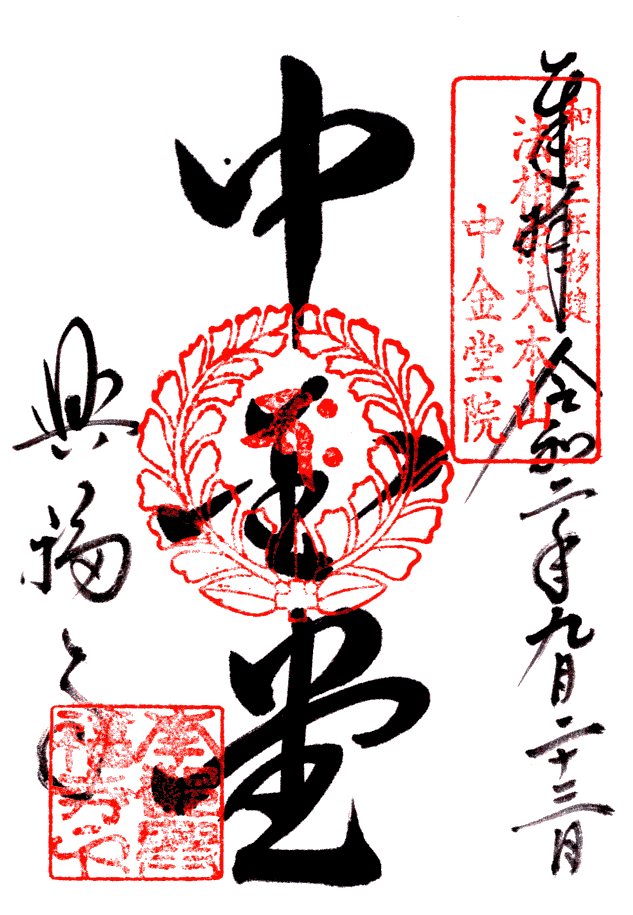 奉拝 令和二年九月二十三日
和銅三年移建
法相宗大本山
中金堂院
中金堂
興福寺